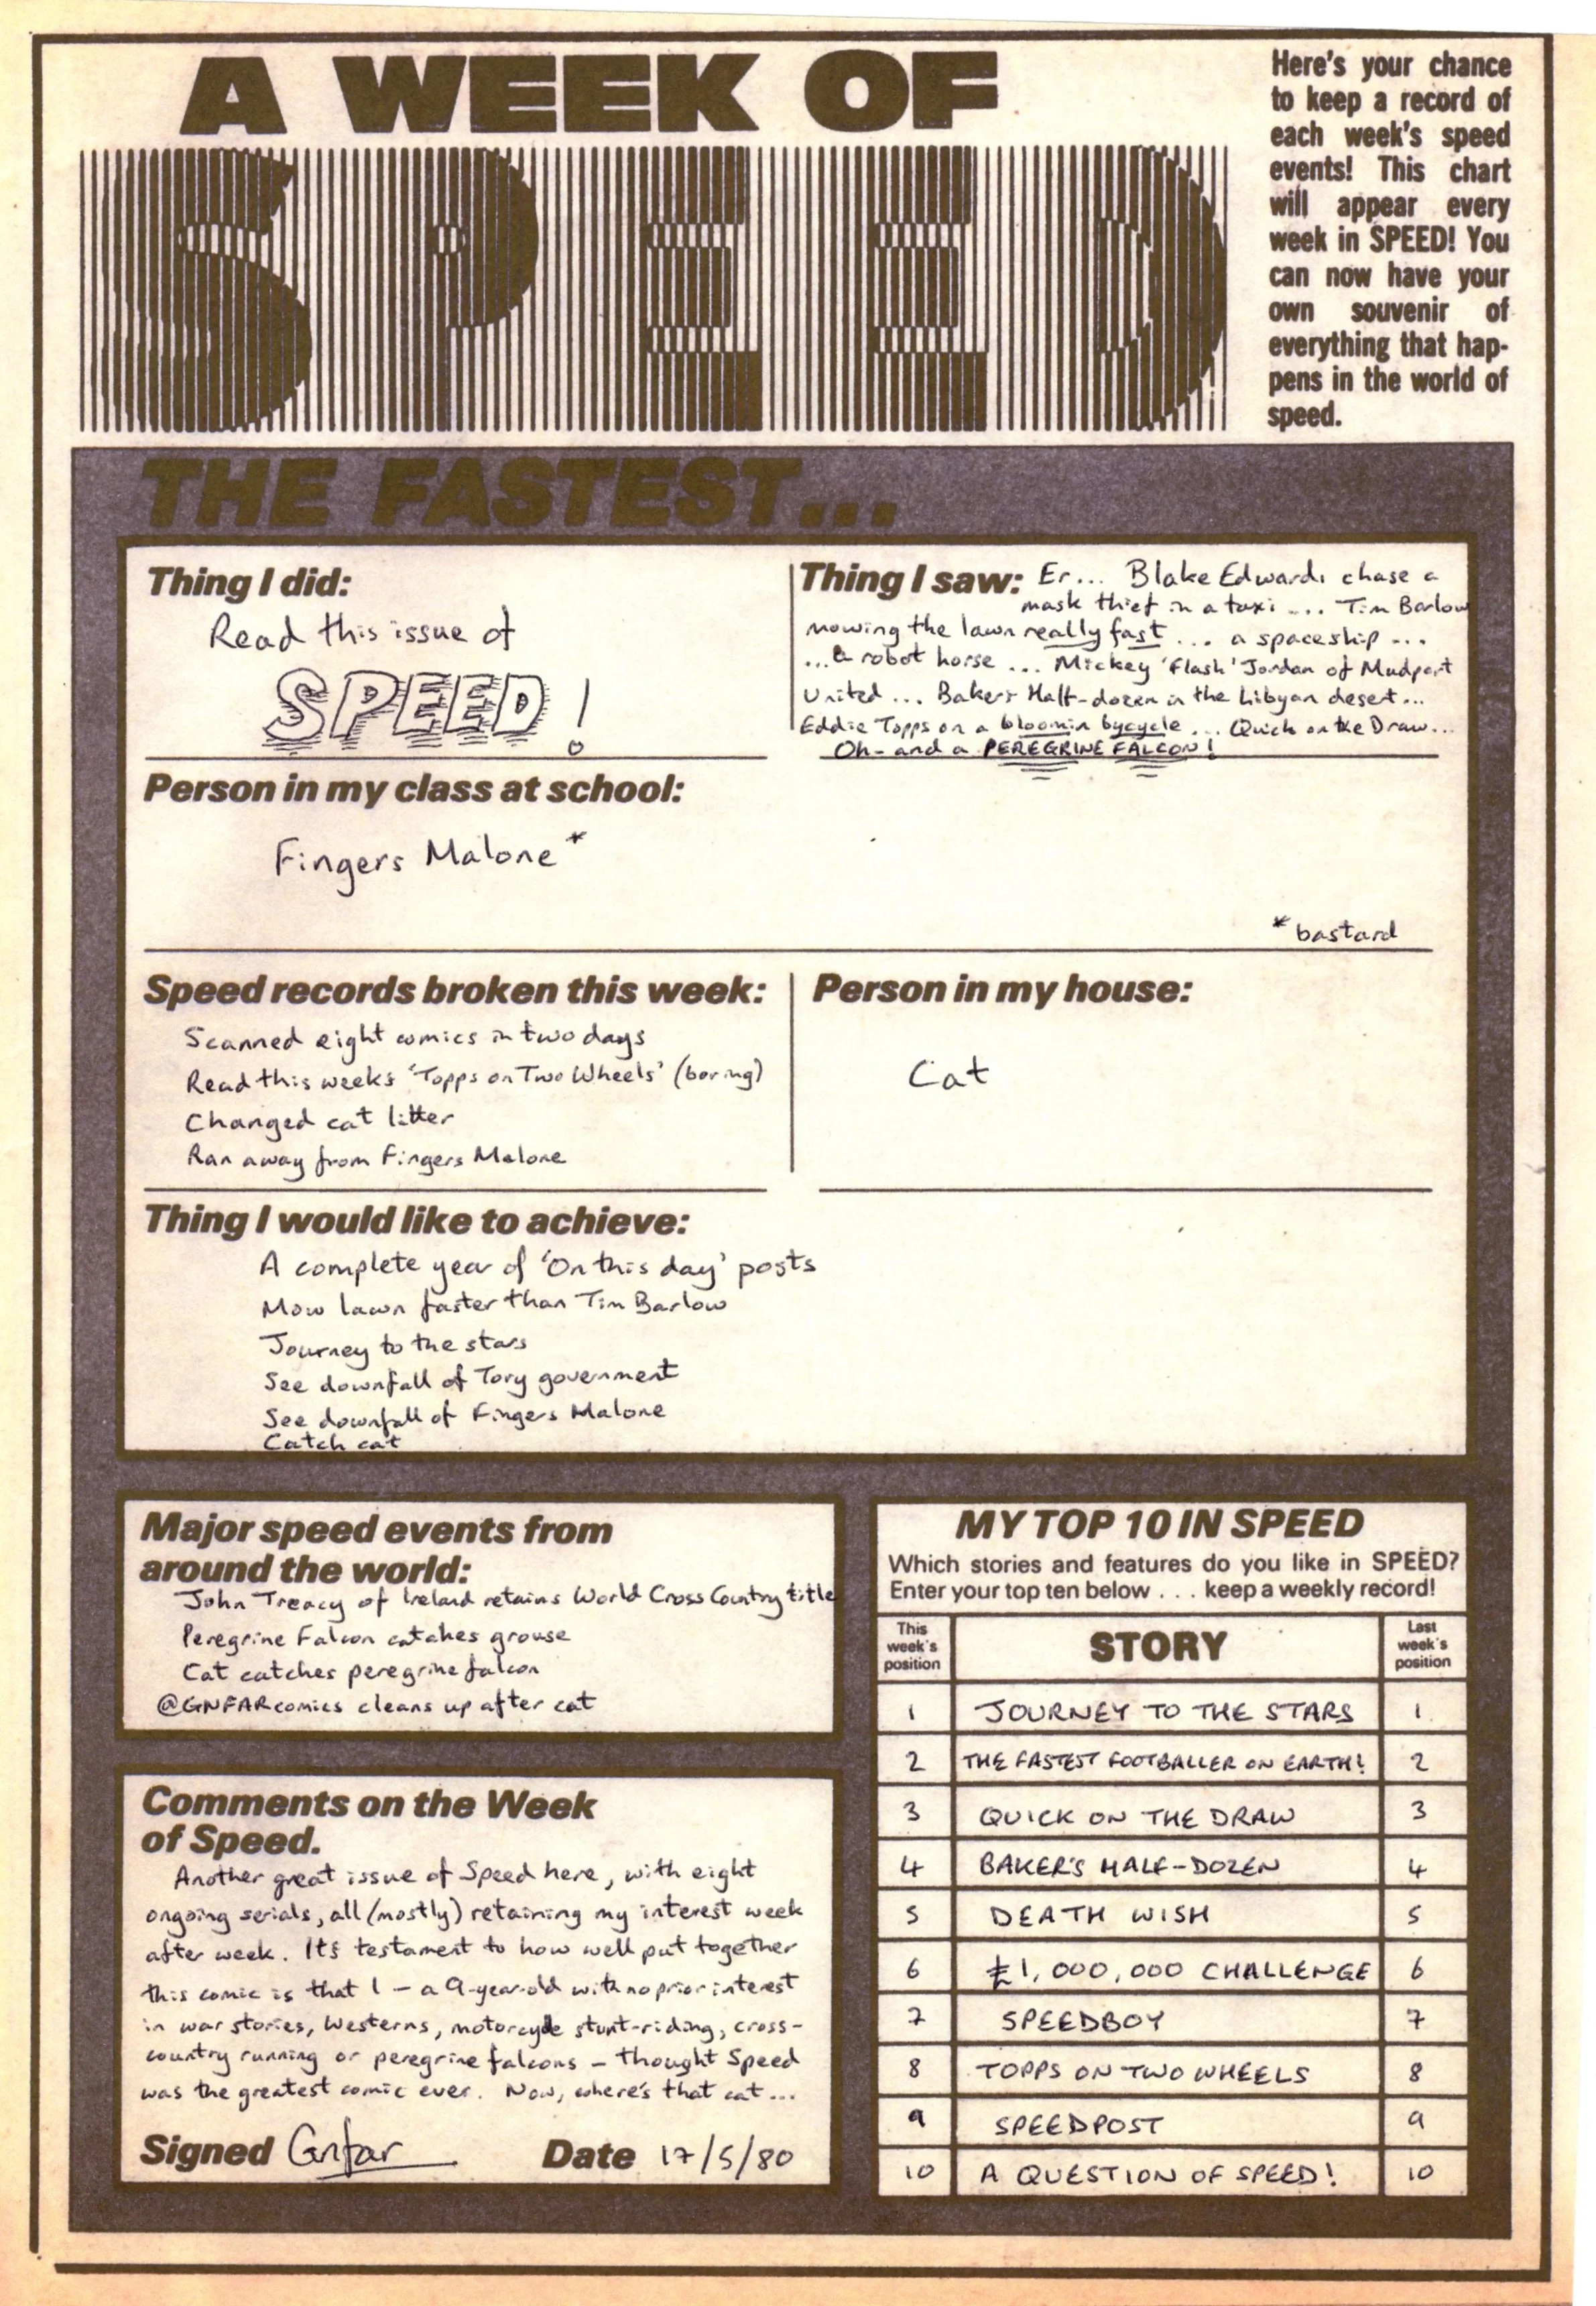 A WEEK OF
SPEED
Here's your chance
to keep a record of
each week's speed
events! This chart
will appear every
week in SPEED! You
can now have your
own souvenir of
everything that hap-
pens in the world of
speed.
THE FASTEST...
Thing I did:
Read this issue of
SPEED!
Thing I saw: Er... Blake Edwards chase a
mask thief in a taxi ... Tim Barlow
mowing the lawn really fast ... a spaceship ...
...a robot horse ... Mickey 'Flash' Jordan of Mudport
United ... Baker's Half-dozen in the Libyan desert...
Eddie Topps on a bloomin bycycle ... Quick on the Draw...
Oh - and a PEREGRINE FALCON!
Person in my class at school:
Fingers Malone*
*bastard
Speed records broken this week:
Scanned eight comics in two days
Read this weeks 'Topps on Two Wheels' (boring)
Changed cat litter
Ran away from Fingers Malone
Person in my house:
Cat
Thing I would like to achieve:
A complete year of 'On this day' posts
Mow lawn faster than Tim Barlow
Journey to the stars
See downfall of Tory government
See downfall of Fingers Malone
Catch cat
Major speed events from
around the world:
John Treacy of Ireland retains World Cross Country title
Peregrine Falcon catches grouse
Cat catches peregrine falcon
@GNFARcomics cleans up after cat
Comments on the Week
of Speed.
Another great issue of Speed here, with eight
ongoing serials, all (mostly) retaining my interest week
after week. It's testament to how well put together
this comic is that I – a 9-year-old with no prior interest
in war stories, Westerns, motorcycle stunt-riding, cross-
country running or peregrine falcons – thought Speed
was the greatest comic ever. Now, where's that cat...
Signed Gnfar Date 17/5/80
MY TOP 10 IN SPEED
Which stories and features do you like in SPEED?
Enter your top ten below . . . keep a weekly record!
This week's position STORY Last week's position
1 JOURNEY TO THE STARS 1
2 THE FASTEST FOOTBALLER ON EARTH! 2
3 QUICK ON THE DRAW 3
4 BAKER'S HALF-DOZEN 4
5 DEATH WISH 5
6 £1,000,000 CHALLENGE 6
7 SPEEDBOY 7
8 TOPPS ON TWO WHEELS 8
9 SPEEDPOST 9
10 A QUESTION OF SPEED! 10